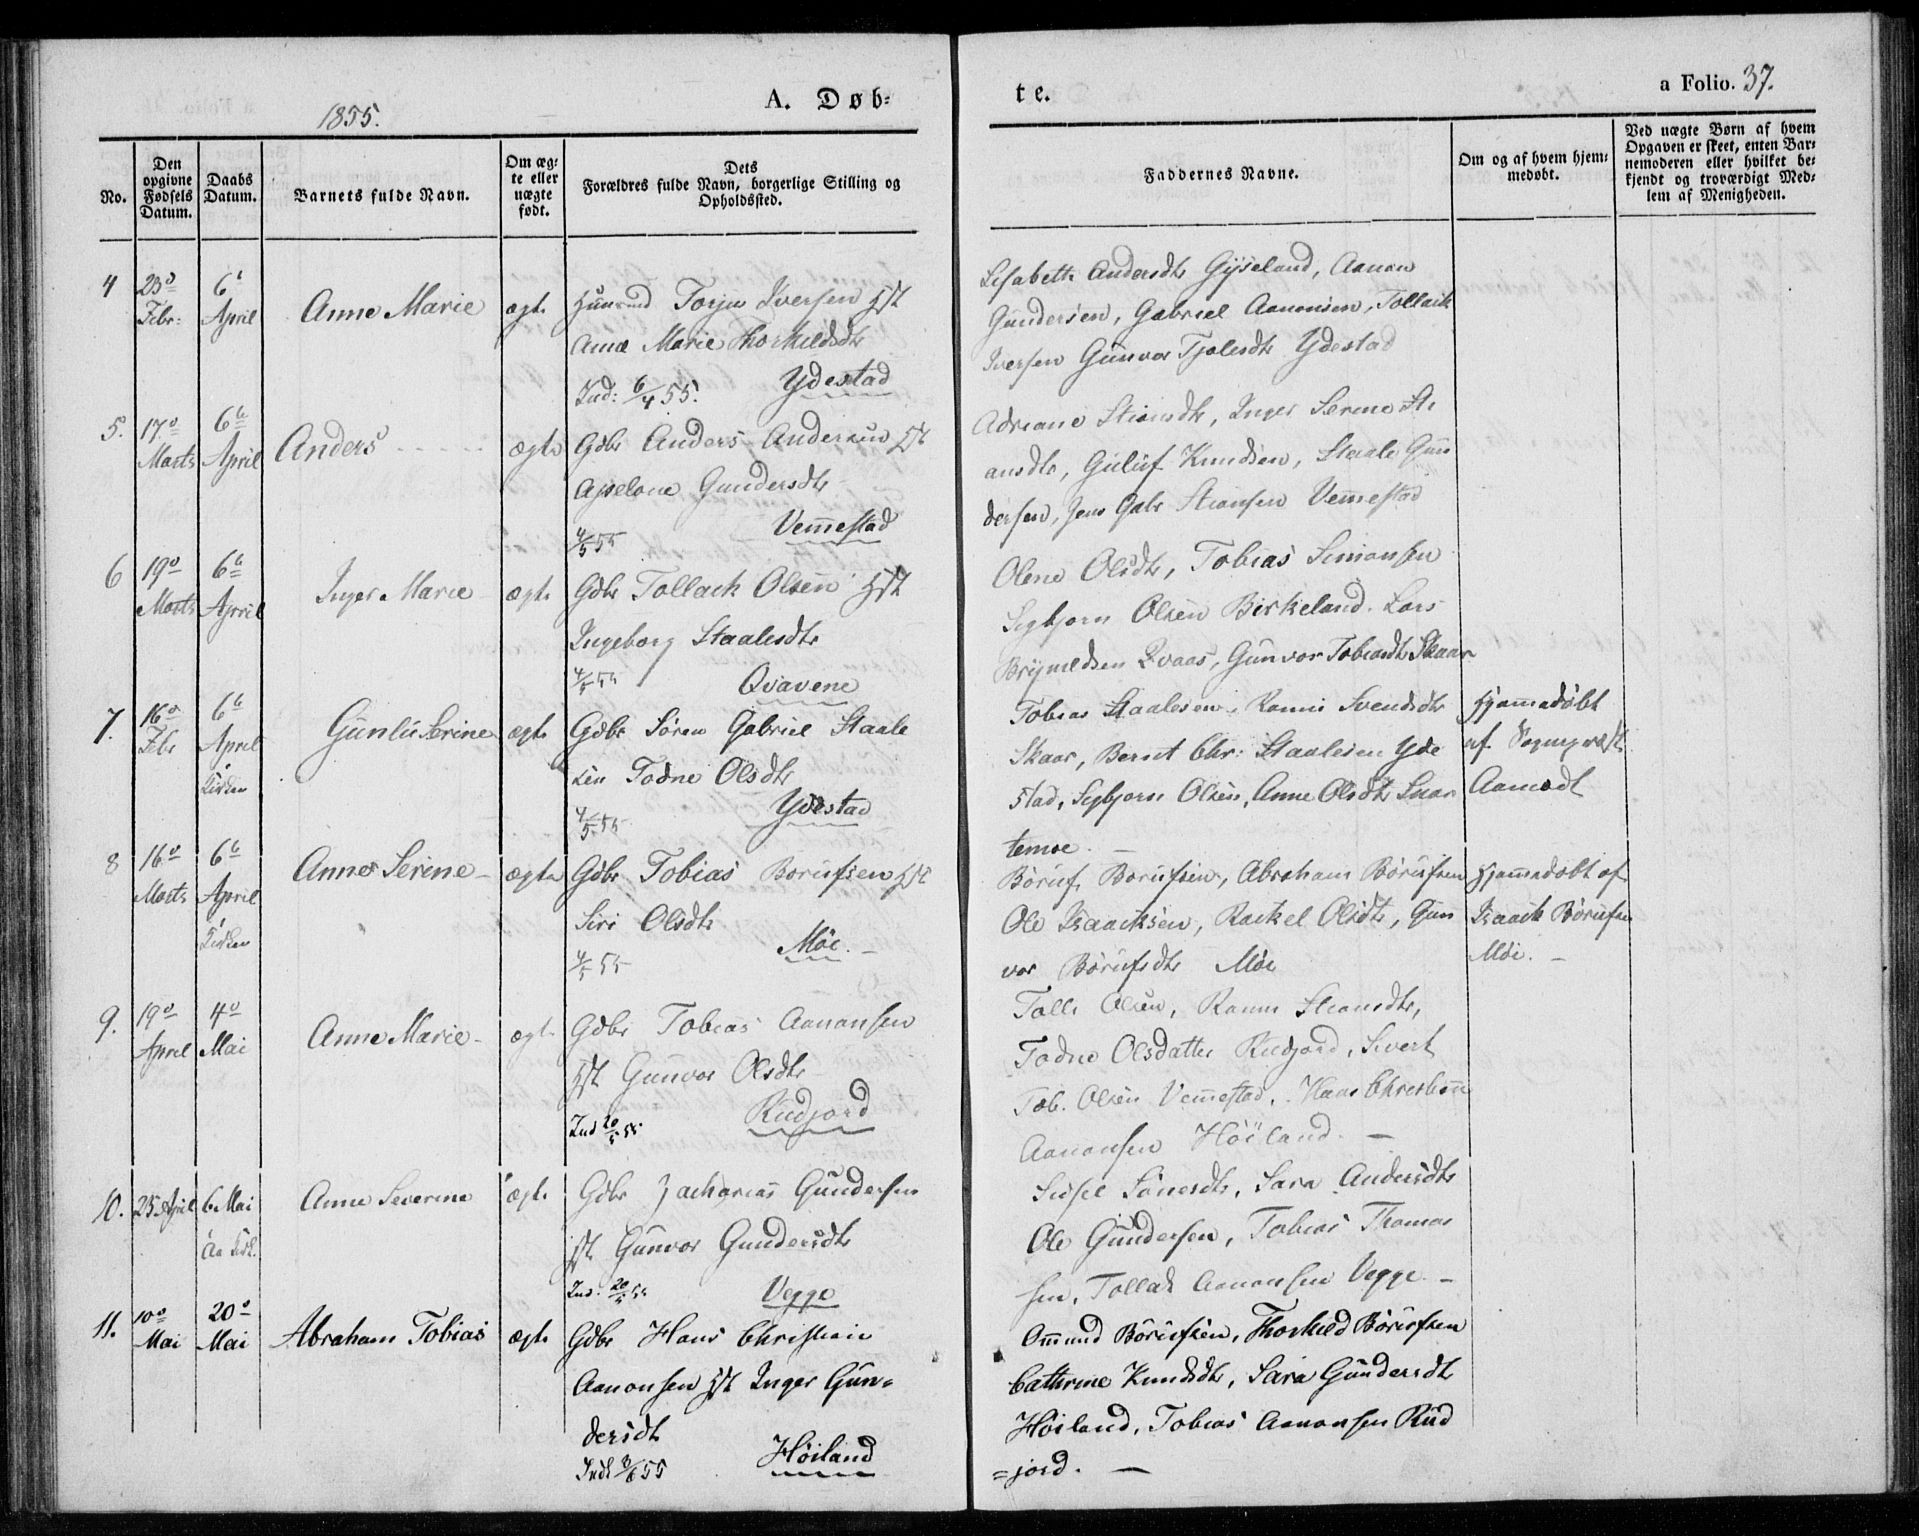 1855.
A. Døb-
te.
a Folio. 37.
No.
Den opgivne Fødsels Datum.
Daabs Datum.
Barnets fulde Navn.
Om ægte eller uægte født.
Dets Forældres fulde Navn, borgerlige Stilling og Opholdssted.
Faddernes Navne.
Om og af hvem hjemmedøbt.
Ved uægte Børn af hvem Opgaven er skeet, enten Barnemoderen eller hvilket bekjendt og troværdigt Medlem af Menigheden.
4
23de Febr:
6te April
Anne Marie
ægte
Huusmd Torju Iversen Hst
Anne Marie Thorkildsdtr
Ind: 6/4 55. Ydestad
Lisabeth Andersdtr Gyseland, Aanon
Gundersen, Gabriel Aanonsen, Tollack
Iversen Gunvor Tjølsdtr Ydestad
5.
17de Marts
6te April
Anders
ægte
Gdbr Anders Andersen Hst
Apselone Gundersdtr
4/5 55 Vemestad
Adriane Stiansdtr, Inger Serine Sti
ansdtr, Guluf Knudsen, Staale Gun
dersen, Jens Gabr Stiansen Vemestad
6
19de Marts
6te April
Inger Marie
ægte
Gdbr Tollack Olsen Hst
Ingeborg Staalesdtr
4/5 55 Qvavene
Olene Olsdtr, Tobias Simonsen
Segbjørn Olsen Birkeland. Lars
Brynildsen Qvaas, Gunvor Tobiasdtr Skaar
7.
16de Febr
6te April i Kirken
Gunlu Serine
ægte
Gdbr Søren Gabriel Staale
sen Todne Olsdtr
4/5 55 Ydestad
Tobias Staalesen, Rannei Svendsdtr
Skaar, Bernt Chr: Staalesen Yde
stad, Segbjørn Olsen, Anne Olsdtr Snar
temoe. —
Hjemmedøbt
af Sognepræst
Aamodt
8
16de Marts
6te April i Kirken
Anne Serine
ægte
Gdbr Tobias Børufsen Hst
Siri Olsdtr
4/5 55 Møe. —
Børuf Børufsen, Abraham Børufsen
Ole Isaacksen, Rackel Olsdtr, Gun
vor Børufsdtr Møe
Hjemmedøbt af
Isaack Børufsen
Møi. —
9.
19de April
4de Mai
Anne Marie
ægte
Gdbr Tobias Aanonsen
Hst Gunvor Olsdtr
Ind 20/5 55 Rudjord
Talle Olsen, Ranni Stiansdtr,
Todne Olsdatter Rudjord, Sivert
Tob. Olsen Vemestad, Hans Christian
Aanonsen Høiland. —
10.
25 April
6 Mai Aa Kirk.
Anne Severine
ægte
Gdbr Zacharias Gundersen
Hst Gunvor Gundersdtr
Ind: 20/5 55 Vegge
Sidsel Sønesdtr, Sara Andersdtr
Ole Gundersen, Tobias Thomas
sen, Tollak Aanonsen Vegge. —
11.
10de Mai
20de Mai
Abraham Tobias
ægte
Gdbr Hans Christian
Aanonsen Hst Inger Gun-
dersdtr
Indl 3/6 55 Høiland
Ommund Børufsen, Thorkild Børufsen
Cathrine Knudsdtr, Sara Gundersdtr
Høiland, Tobias Aanonsen Rud
=jord. —